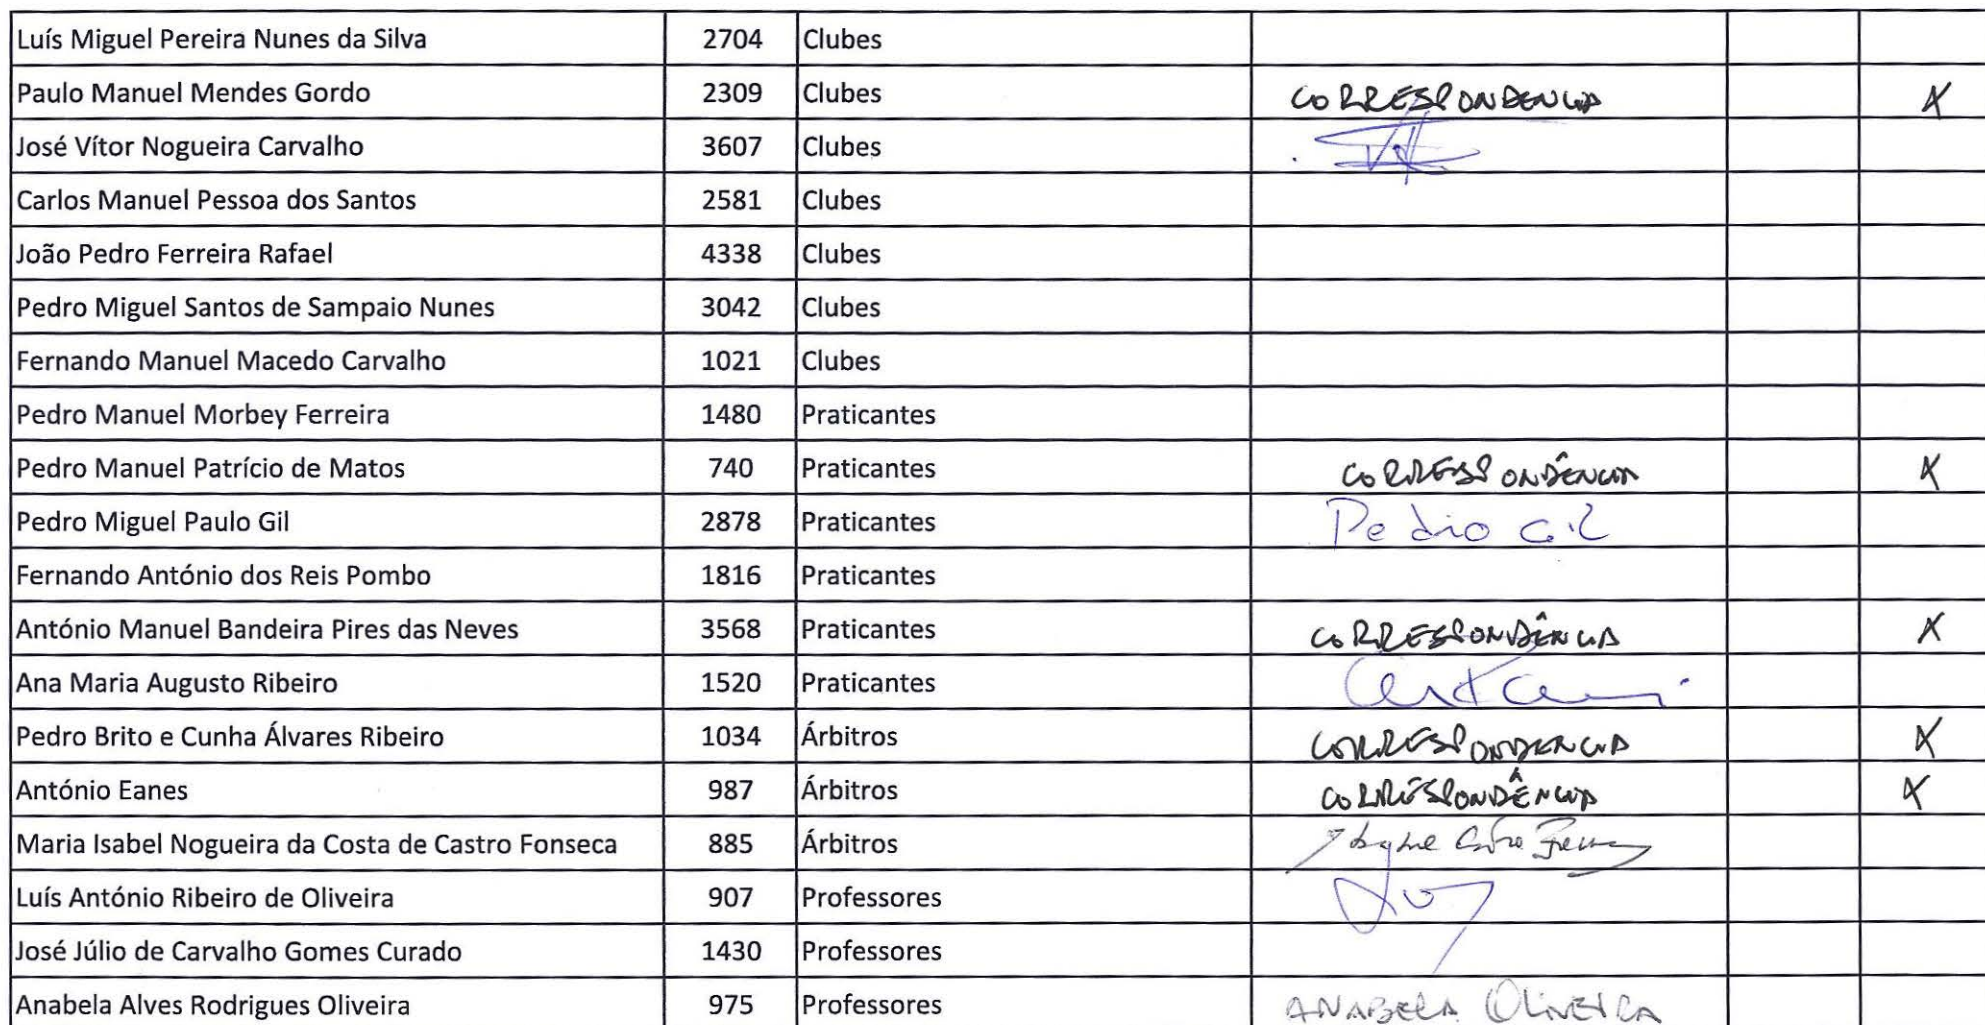 Luís Miguel Pereira Nunes da Silva 2704 Clubes
Paulo Manuel Mendes Gordo 2309 Clubes CORRESPONDENCIA X
José Vítor Nogueira Carvalho 3607 Clubes
Carlos Manuel Pessoa dos Santos 2581 Clubes
João Pedro Ferreira Rafael 4338 Clubes
Pedro Miguel Santos de Sampaio Nunes 3042 Clubes
Fernando Manuel Macedo Carvalho 1021 Clubes
Pedro Manuel Morbey Ferreira 1480 Praticantes
Pedro Manuel Patrício de Matos 740 Praticantes CORRESPONDÊNCIA X
Pedro Miguel Paulo Gil 2878 Praticantes Pedro Gil
Fernando António dos Reis Pombo 1816 Praticantes
António Manuel Bandeira Pires das Neves 3568 Praticantes CORRESPONDÊNCIA X
Ana Maria Augusto Ribeiro 1520 Praticantes
Pedro Brito e Cunha Álvares Ribeiro 1034 Árbitros CORRESPONDENCIA X
António Eanes 987 Árbitros CORRESPONDÊNCIA X
Maria Isabel Nogueira da Costa de Castro Fonseca 885 Árbitros
Luís António Ribeiro de Oliveira 907 Professores
José Júlio de Carvalho Gomes Curado 1430 Professores
Anabela Alves Rodrigues Oliveira 975 Professores ANABELA OLIVEIRA